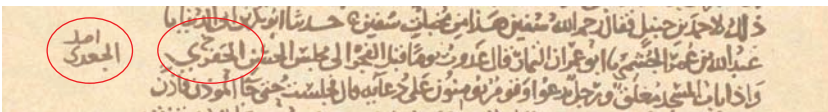 ذلك لاحمد بن حنبل فقال رحم الله سفين هذا من مخبات سفين ٥ حدثنا ابو بكر بن ابي الدنيا نا
عبد الله بن عمر الجشمي نا ابو عمران التمار قال غدوت يوما قبل الفجر الى مجلس الحسن الجفري
اصل
الجعدي
واذا باب المسجد مغلق ورجل يدعوا وقوم يومنون على دعايه قال فجلست حتى جا الموذن فاذن